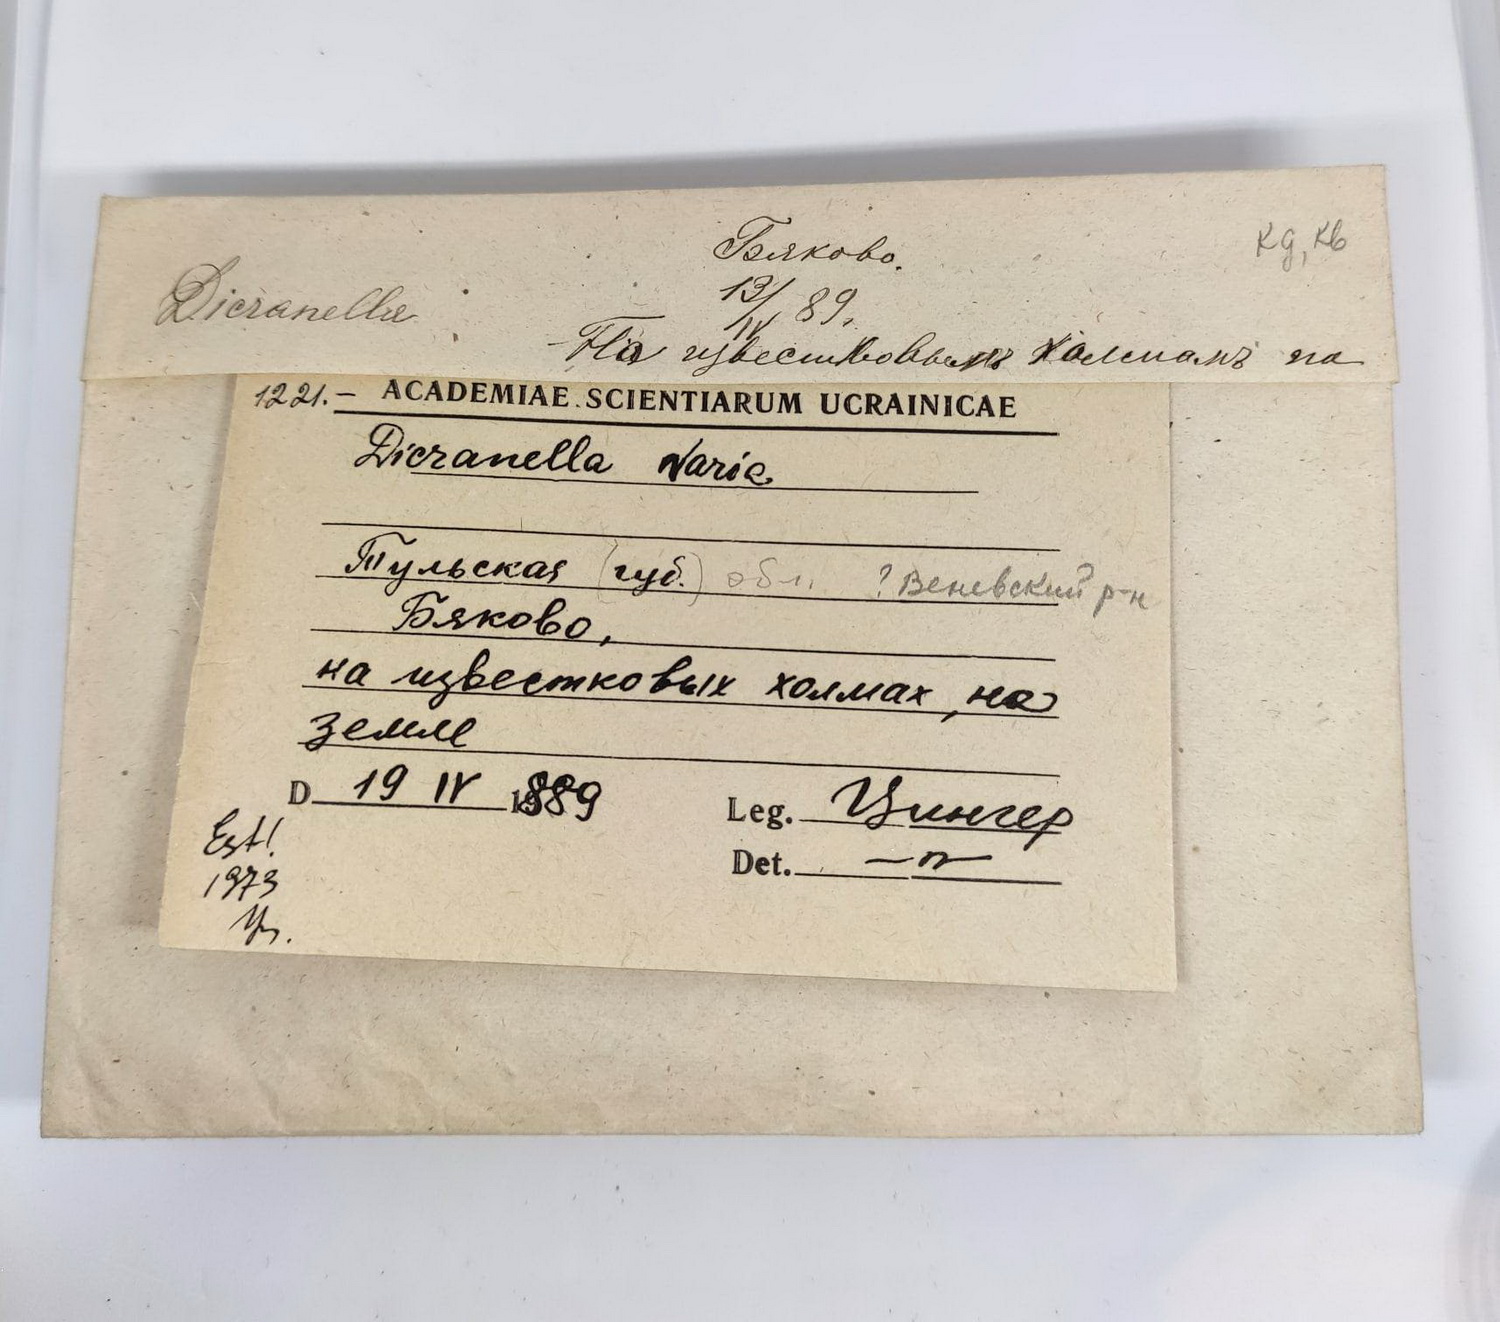 Бяково.
Кд, Кв
Dicranella
13/IV 89.
На известковымъ холмамъ на
1221. – ACADEMIAE SCIENTIARUM UCRAINICAE
Dicranella varia
Тульская (губ.) обл. ? Веневский р-н
Бяково,
на известковых холмах, на
земле
D 19 IV 1889
Leg. Цингер
Det. —"—
Est!
1973